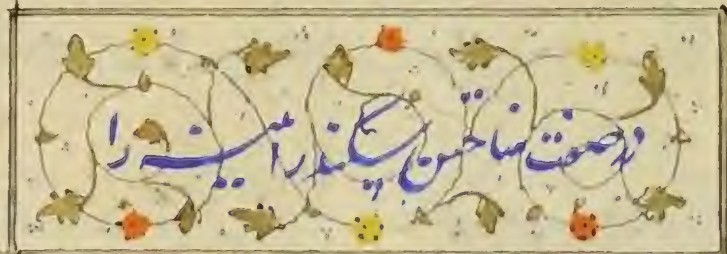 در صفت ساختن سکندر آینه را